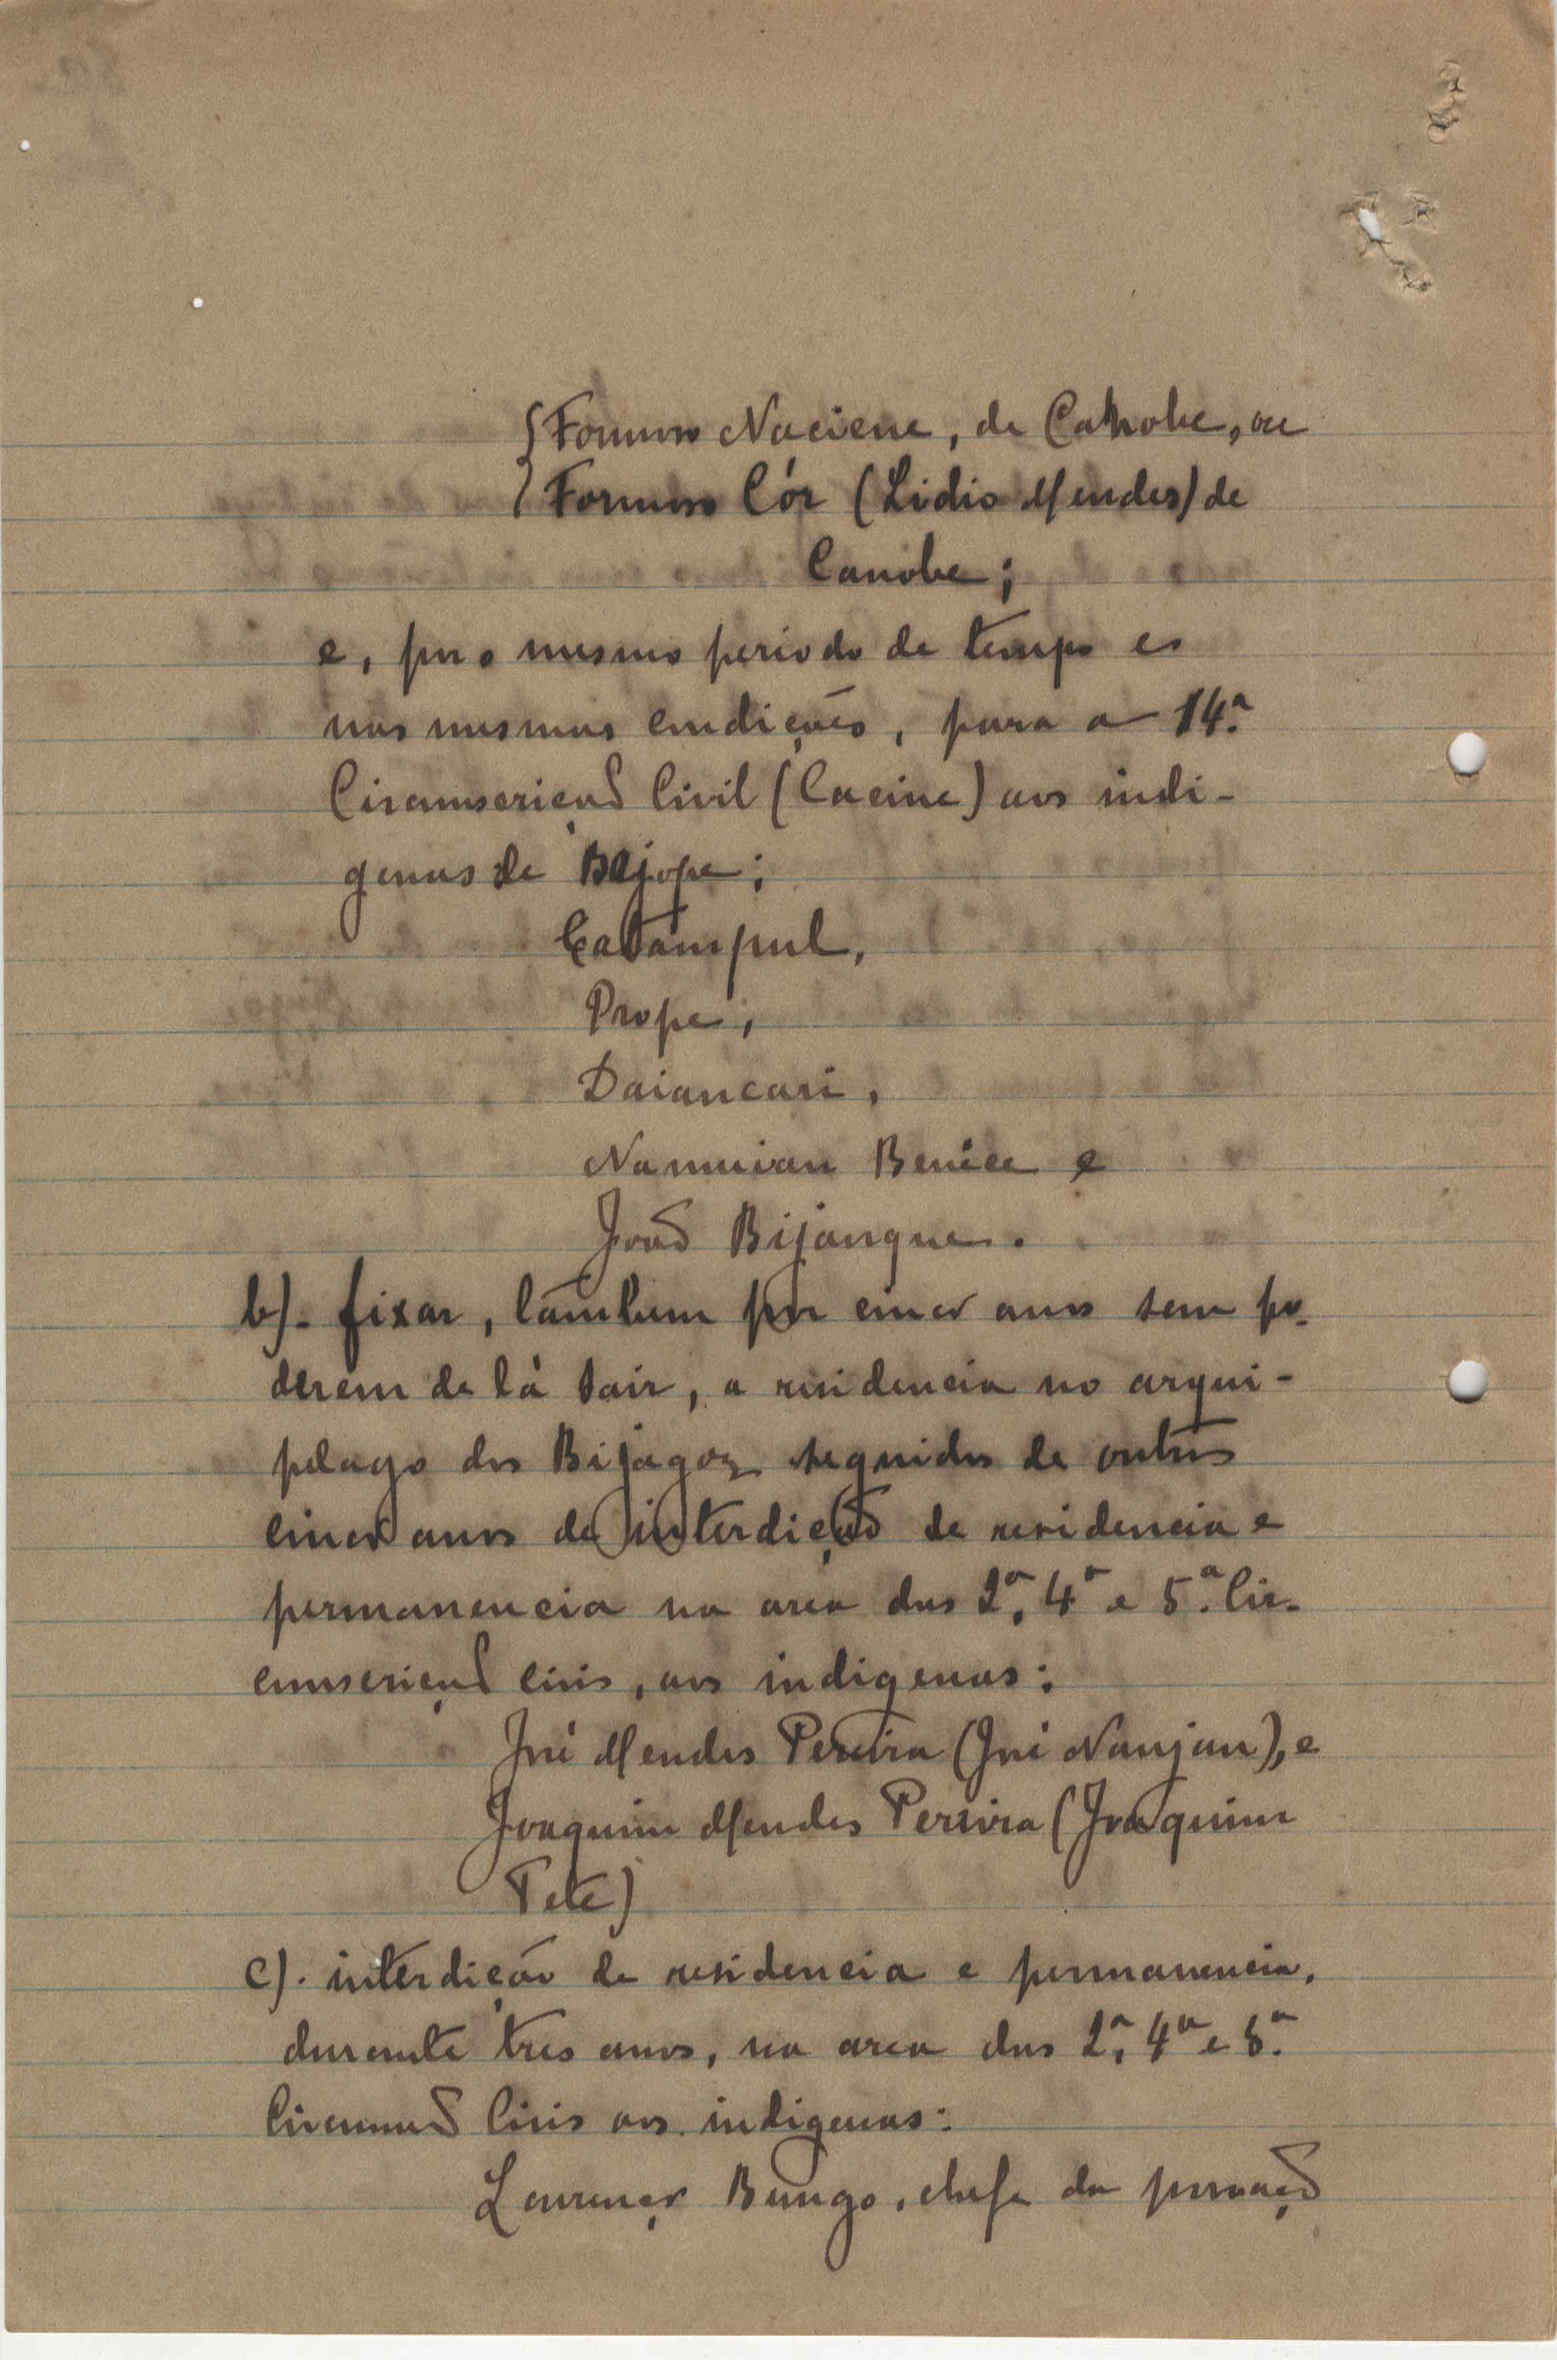 Formoso Naciene, de Canobe, ou
Formoso Côr (Lidio Mendes) de
Canobe;
e, por o mesmo periodo de tempo e
nas mesmas condições, para a 14.ª
Circunscrição Civil (Cacine) aos indi-
genas de Bajope;
Catampul,
Prope,
Daiancari,
Namuian Benice e
João Bijanque.
b). fixar, tambem por cinco anos sem po-
derem de lá sair, a residencia no arqui-
pelago dos Bijagoz seguidos de outros
cinco anos de interdição de residencia e
permanencia na area das 2.ª, 4.ª e 5.ª Cir-
cunscrição civis, aos indigenas:
José Mendes Pereira (José Nanjan), e
Joaquim Mendes Pereira (Joaquim
Tete)
c). interdição de residencia e permanencia,
durante tres anos, na area das 2.ª, 4.ª e 5.ª
Civis aos indigenas:
Lourenço Bungo, chefe da povoação